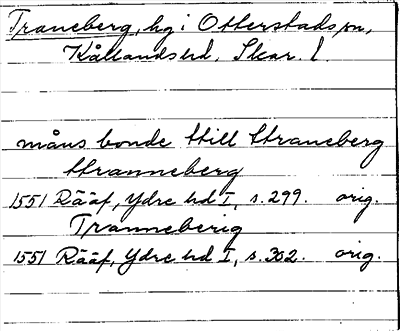 Traneberg, hg i Otterstads sn,
Kållands hd, Skar. l.
måns bonde ttill ttraneberg
ttranneberg
1551 Rääf, Ydre hd I, s. 299. orig.
Tranneberig
1551 Rääf, Ydre hd I, s. 302. orig.